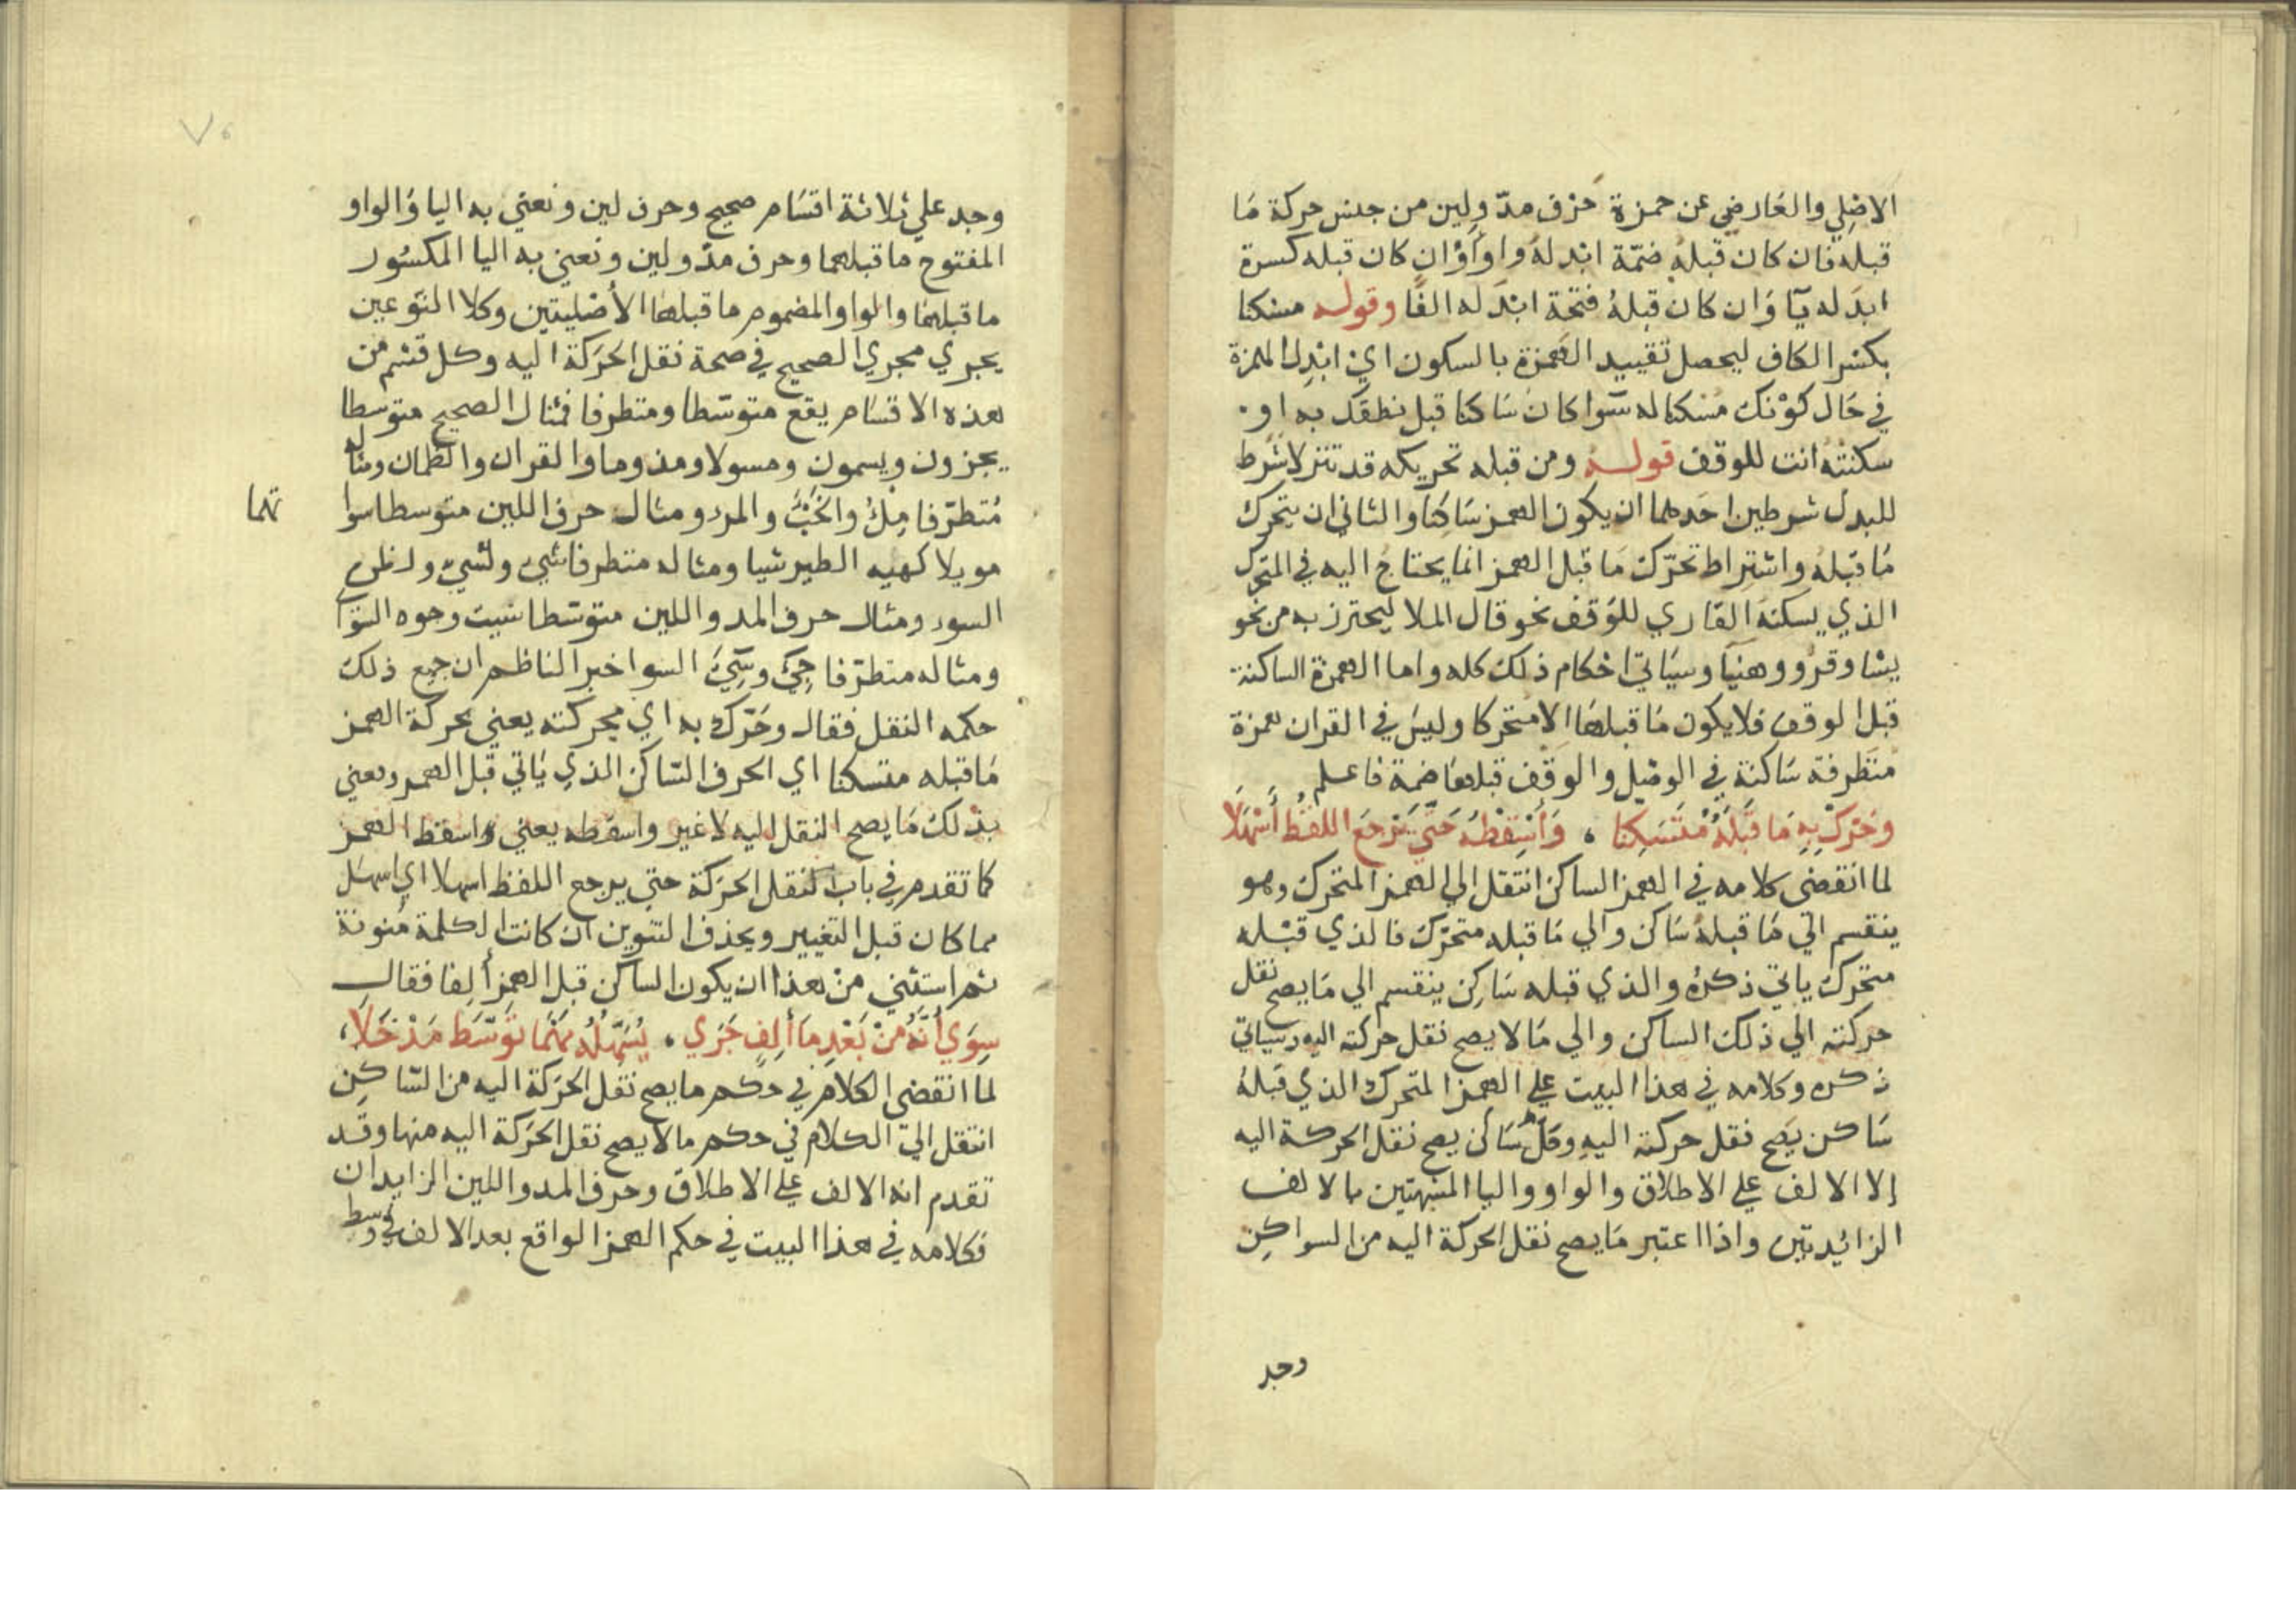 الاصلي والعارضي عن حمزة حرف مدّ ولين من جنس حركة مَا
قبله فان كان قبلهُ ضمّة ابدلهُ واوًا وَان كان قبله كسرة
ابدَله يآ وَان كان قبلهُ فتحة ابدَله الفًا وقوله مسكنا
بكسْر الكاف ليحصل تقييد الهمزة بالسكون ايْ ابْدِل الهمزة
في حَال كوْنك مُسْكنا له سَوا كان سَاكنا قبل نطقك به او
سكنتهُ انت للوقف قولهُ ومن قبله تحريكه قد تنزلا شرط
للبدل شرطين احَدهما ان يكون الهمز سَاكنًا والثاني ان يتحرك
مَا قبْلهُ واشتراط تحرّك مَا قبل الهمز انما يحتاج اليه في المتحرك
الذي يسكنهُ القاري للوَقف نحو قال الملا ليحترز به من نحو
يشا وقرُو وهنيَا وسَياتي احْكام ذلك كله واما الهمزة الساكنة
قبل الوقف فلا يكون مَا قبلهَا الا متحركا وليسَ في القران همزة
متطرفة سَاكنة في الوصْل والوقف قبلهَا ضمة فاعلم
وَحَرِّكْ بِهِ مَا قَبْلَهُ مُتَسَكِّنا ، وَأَسْقِطْهُ حَتَّى يَرْجِعَ اللفْظُ أَسْهَلَا
لما انقضى كلامه في الهمز الساكن انتقل الي الهمز المتحرك وهو
ينقسم الي مَا قبلهُ سَاكن والي مَا قبله متحرّك فالذي قبْله
متحرك ياتي ذكرهُ والذي قبله سَاكِن ينقسم الي مَا يصح نقل
حركته الي ذلك الساكن والي مَا لا يصح نقل حركته اليه وسياتي
ذكره وكلامه في هذا البيت علي الهمز المتحرك الذي قبلهُ
سَاكن يَصح نقل حركته اليهِ وكلّ سَاكن يصح نقل الحركة اليه
إلا الالف علي الاطلاق والواو واليا المشبهتين بالالف
الزائدتيْن واذا اعتبر مَا يصح نقل الحركة اليه من السواكِن
وجد
وجد علي ثلاثة اقسَام صحيح وحرف لين ونعني به اليا وَالواو
المفتوح ما قبلهما وحرف مدّ ولين ونعني به اليا المكسُور
ما قبلهَا والواو المضموم ما قبلهَا الأصْليتين وكلا النوعين
يجري مجري الصحيح في صحة نقل الحَرَكة اليه وكل قسْم من
هذه الاقسَام يقع متوسّطا ومتطرفا فمثال الصحيح متوسطا
يجزون ويسمون ومسولا ومذوما والقران والظمان ومثاله
مُتطرّفا مِلْءُ والخَبْءَ والمرء ومثال حرف اللين متوسطا سوا
تهما
مويلا كهيه الطير شيا ومثاله متطرفا شيء ولشيء
السوء ومثال حرف المد واللين متوسّطا سيت وجوه السوا
ومثاله متطرّفا جيَء وسِيَء السوا خبر الناظم ان جميع ذلك
حكمه النقل فقال وحَرّك به اي بحركته يعني بحركة الهمز
مَا قبله متسكنا اي الحرف السّاكن الذي يَاتي قبل الهمز ويعني
بذلك مَا يصح النقل اليه لا غير واسقطه يعني واسقط الهمز
كما تقدم في باب نقل الحَرَكة حتي يرجع اللفظ اسهلا اي اسهَل
مما كان قبل التغيير ويحذف التنوين ان كانت الكلمة مُنونة
ثم استثني منْ هذا ان يكون الساكن قبل الهمز ألِفا فقال
سِوَي أَنَّهُ مِنْ بَعْدِ مَا أَلِفٍ جَرَي ، يُسَهِّلُهُ مَهْمَا تَوَسَّطَ مَدْخَلَا ،
لما انقضى الكلام في حكم ما يصح نقل الحَرَكة اليه من السّاكن
انتقل اليّ الكلام في حكم ما لا يصح نقل الحَرَكة اليه منها وقد
تقدم انه الالف علي الاطلاق وحرف المد واللين الزايدان
فكلامه في هذا البيت في حكم الهمز الواقع بعد الالف في وسط